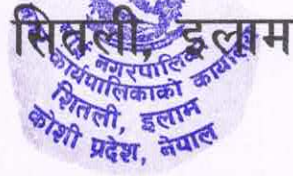 सितली, इलाम
नगरपालिका
कार्यपालिकाको कार्यालय
शितली, इलाम
कोशी प्रदेश, नेपाल